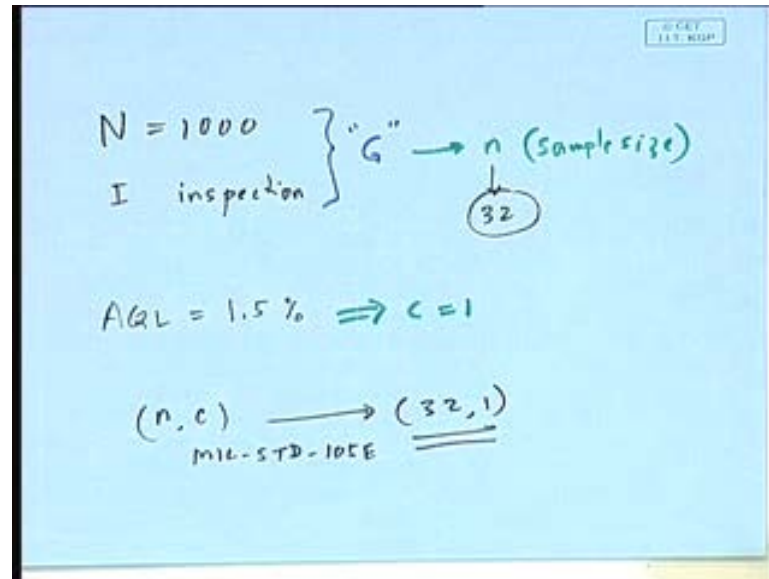 © CET
I.I.T. KGP
N = 1000
I inspection
"G" → n (sample size)
32
AQL = 1.5 % ⇒ c = 1
(n, c) → (32, 1)
MIL-STD-105E